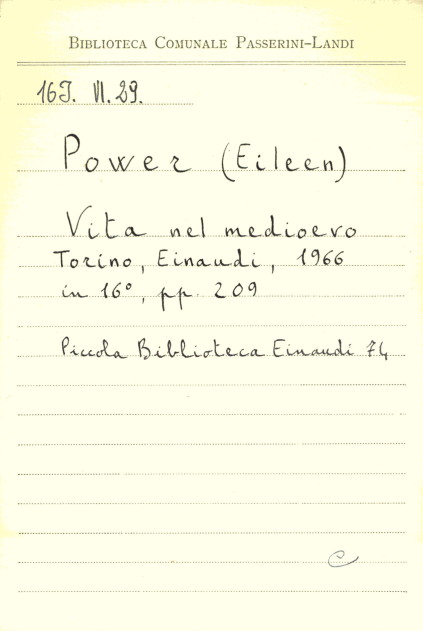 BIBLIOTECA COMUNALE PASSERINI-LANDI
16J. VI. 29.
Power (Eileen)
Vita nel medioevo
Torino, Einaudi, 1966
in 16°, pp. 209
Piccola Biblioteca Einaudi 74
C